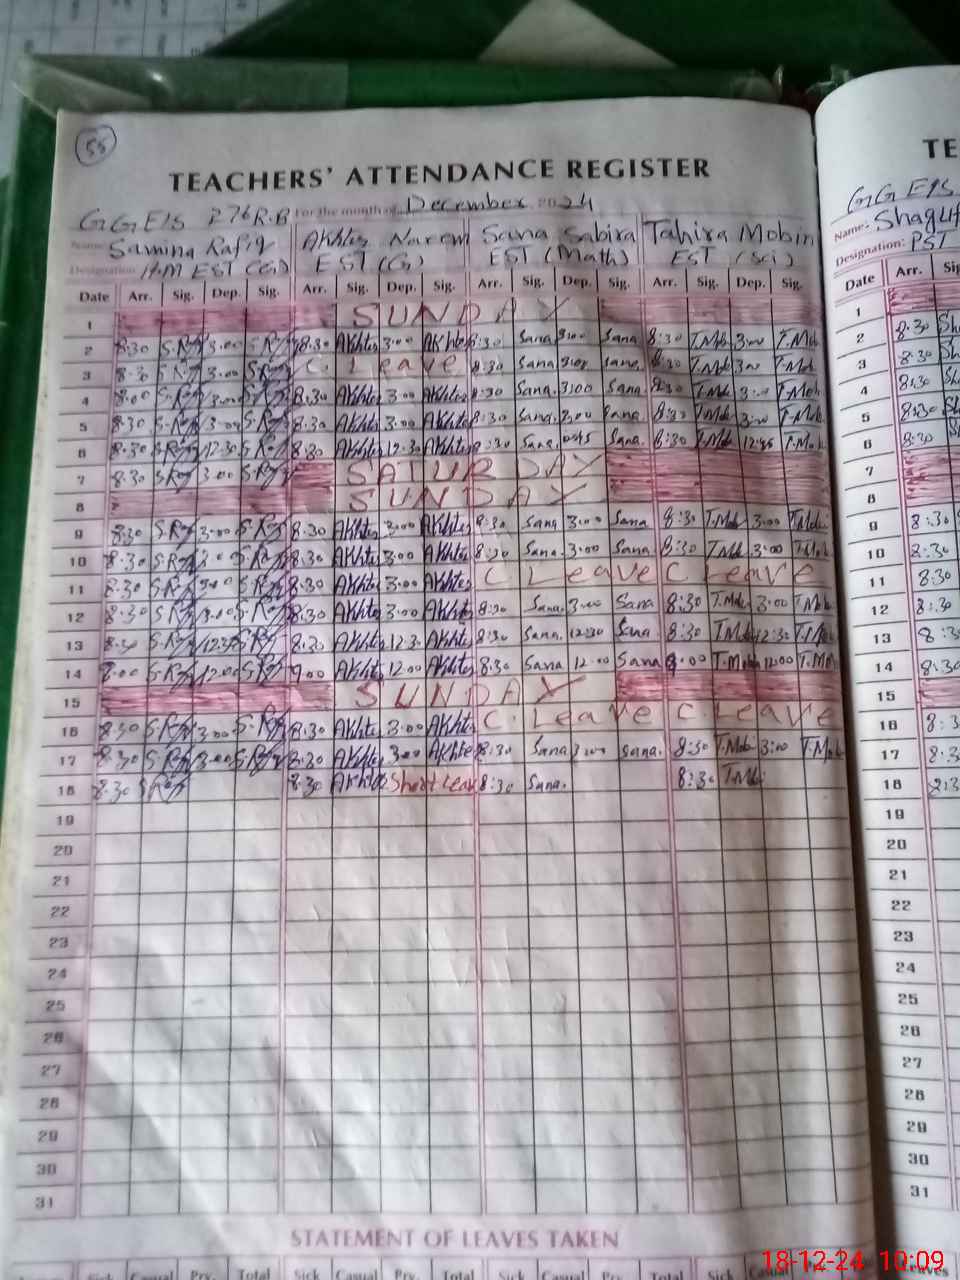 55
TEACHERS' ATTENDANCE REGISTER
GGE/S 276 R.B For the month of December 2024
Name: Samina Rafiq Akhter Nareem Sana Sabira Tahira Mobin
Designation: H.M EST (G) EST (G) EST (Math) EST (Sci)
Date Arr. Sig. Dep. Sig. Arr. Sig. Dep. Sig. Arr. Sig. Dep. Sig. Arr. Sig. Dep. Sig.
1 SUNDAY
2 8:30 3:00 8:30 Akhter 3:00 Akhter 8:30 Sana 3:00 Sana 8:30 T.Mob 3:00 T.Mob
3 8:30 3:00 C. Leave 8:30 Sana 3:00 Sana 8:30 T.Mob 3:00 T.Mob
4 8:00 3:00 8:30 Akhter 3:00 Akhter 8:30 Sana. 3:00 Sana 8:30 T.Mob 3:00 T.Mob
5 8:30 3:00 8:30 Akhter 3:00 Akhter 8:30 Sana. 3:00 Sana. 8:30 T.Mob 3:00 T.Mob
6 8:30 12:30 8:30 Akhter 12:30 Akhter 8:30 Sana. Sana. 8:30 T.Mob 12:45 T.Mob
7 8:30 3:00 SATURDAY
8 SUNDAY
9 8:30 3:00 8:30 Akhter 3:00 Akhter 8:30 Sana 3:00 Sana 8:30 T.Mob 3:00 T.Mob
10 8:30 3:00 8:30 Akhter 3:00 Akhter 8:30 Sana. 3:00 Sana. 8:30 T.Mob 3:00 T.Mob
11 8:30 3:00 8:30 Akhter 3:00 Akhter C. Leave C. Leave
12 8:30 3:00 8:30 Akhter 3:00 Akhter 8:30 Sana. 3:00 Sana 8:30 T.Mob 3:00 T.Mob
13 8:30 12:30 8:30 Akhter 12:30 Akhter 8:30 Sana. 12:30 Sana 8:30 T.Mob 12:30 T.Mob
14 8:00 12:00 9:00 Akhter 12:00 Akhter 8:30 Sana 12:00 Sana 9:00 T.Mob 12:00 T.Mob
15 SUNDAY
16 8:30 3:00 8:30 Akhter 3:00 Akhter C. Leave C. Leave
17 8:30 3:00 8:30 Akhter 3:00 Akhter 8:30 Sana 3:00 Sana. 8:30 T.Mob 3:00 T.Mob
18 8:30 8:30 Akhter Short Leave 8:30 Sana. 8:30 T.Mob
19
20
21
22
23
24
25
26
27
28
29
30
31
STATEMENT OF LEAVES TAKEN
Sick Casual Prv. Total Sick Casual Prv. Total Sick Casual Prv. Total Sick Casual
TE
GGE/S
Name: Shaguf
Designation: PST
Date Arr. Sig
1
2 8:30 Sh
3 8:30 Sh
4 8:30 Sh
5 8:30 Sh
6 8:30 Sh
7
8
9 8:30
10 8:30
11 8:30
12 8:30
13 8:30
14 8:30
15
16 8:3
17 8:3
18 8:3
19
20
21
22
23
24
25
26
27
28
29
30
31
Leaves
18-12-24 10:09